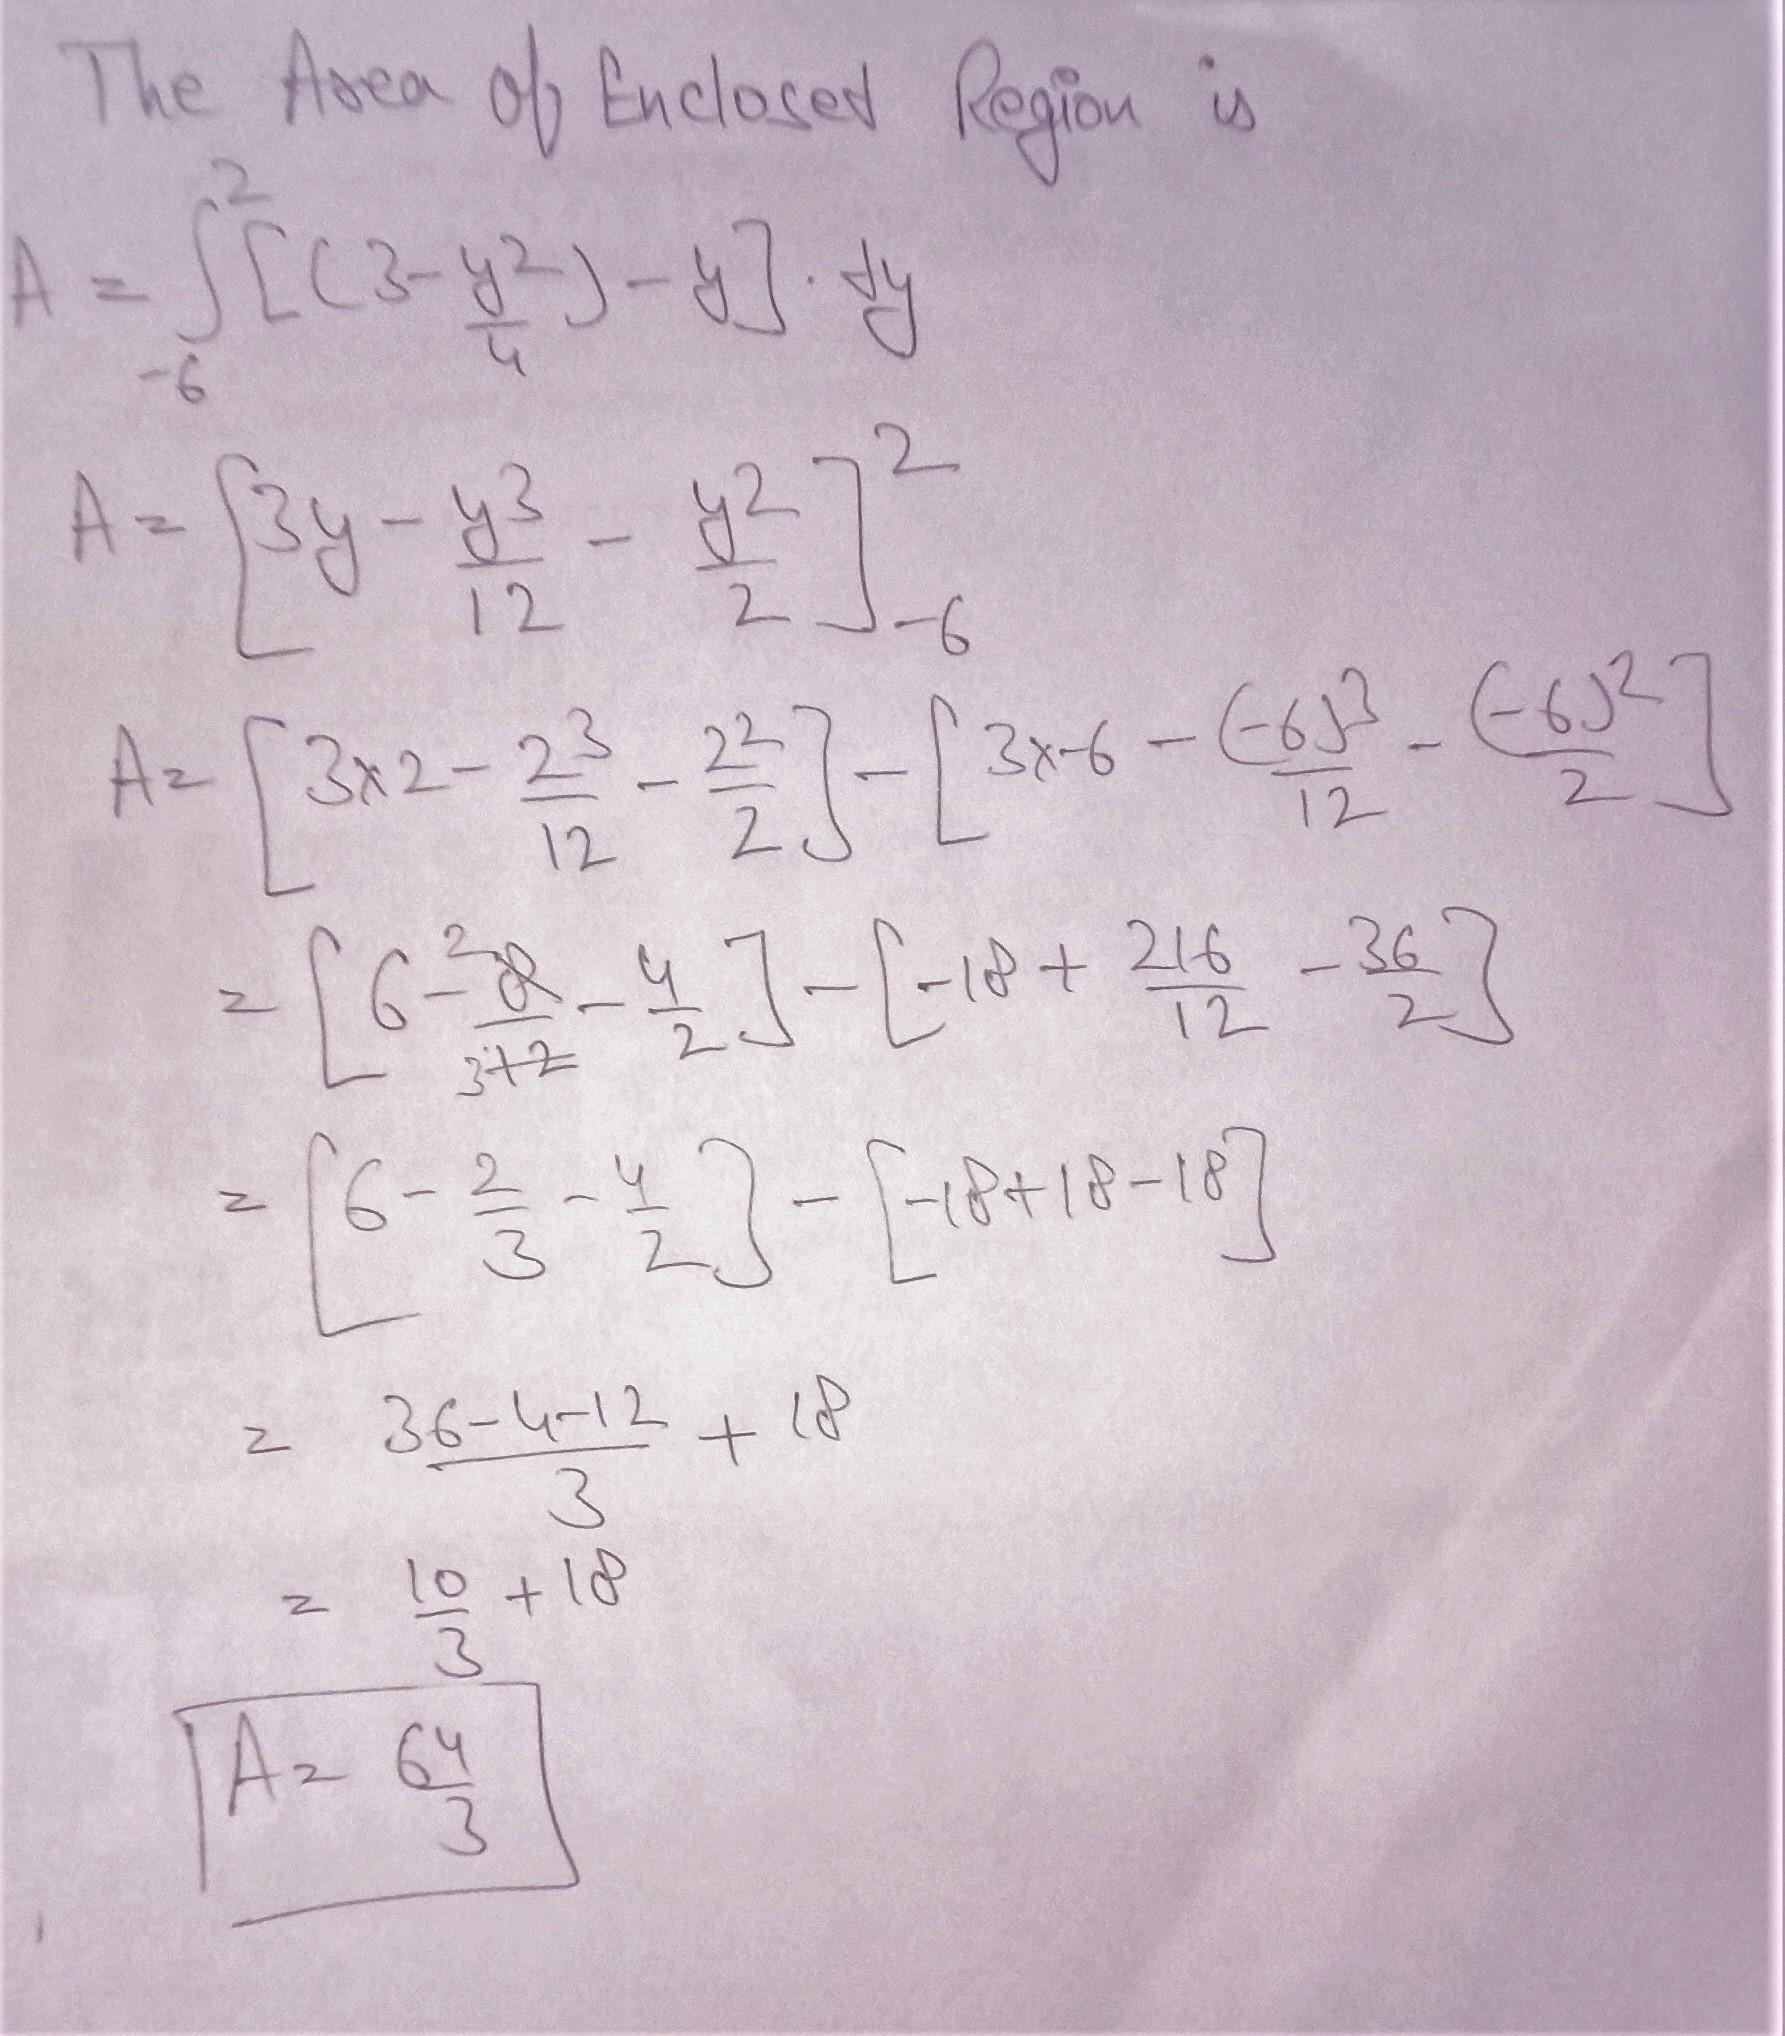 The Area of Enclosed Region is
A = ∫_{-6}^{2} [(3 - y²/4) - y] · dy
A = [3y - y³/12 - y²/2]_{-6}^{2}
A = [3×2 - 2³/12 - 2²/2] - [3×-6 - (-6)³/12 - (-6)²/2]
= [6 - 2 8/3 12 - 4/2] - [-18 + 216/12 - 36/2]
= [6 - 2/3 - 4/2] - [-18+18-18]
= 36-4-12/3 + 18
= 10/3 + 18
A = 64/3